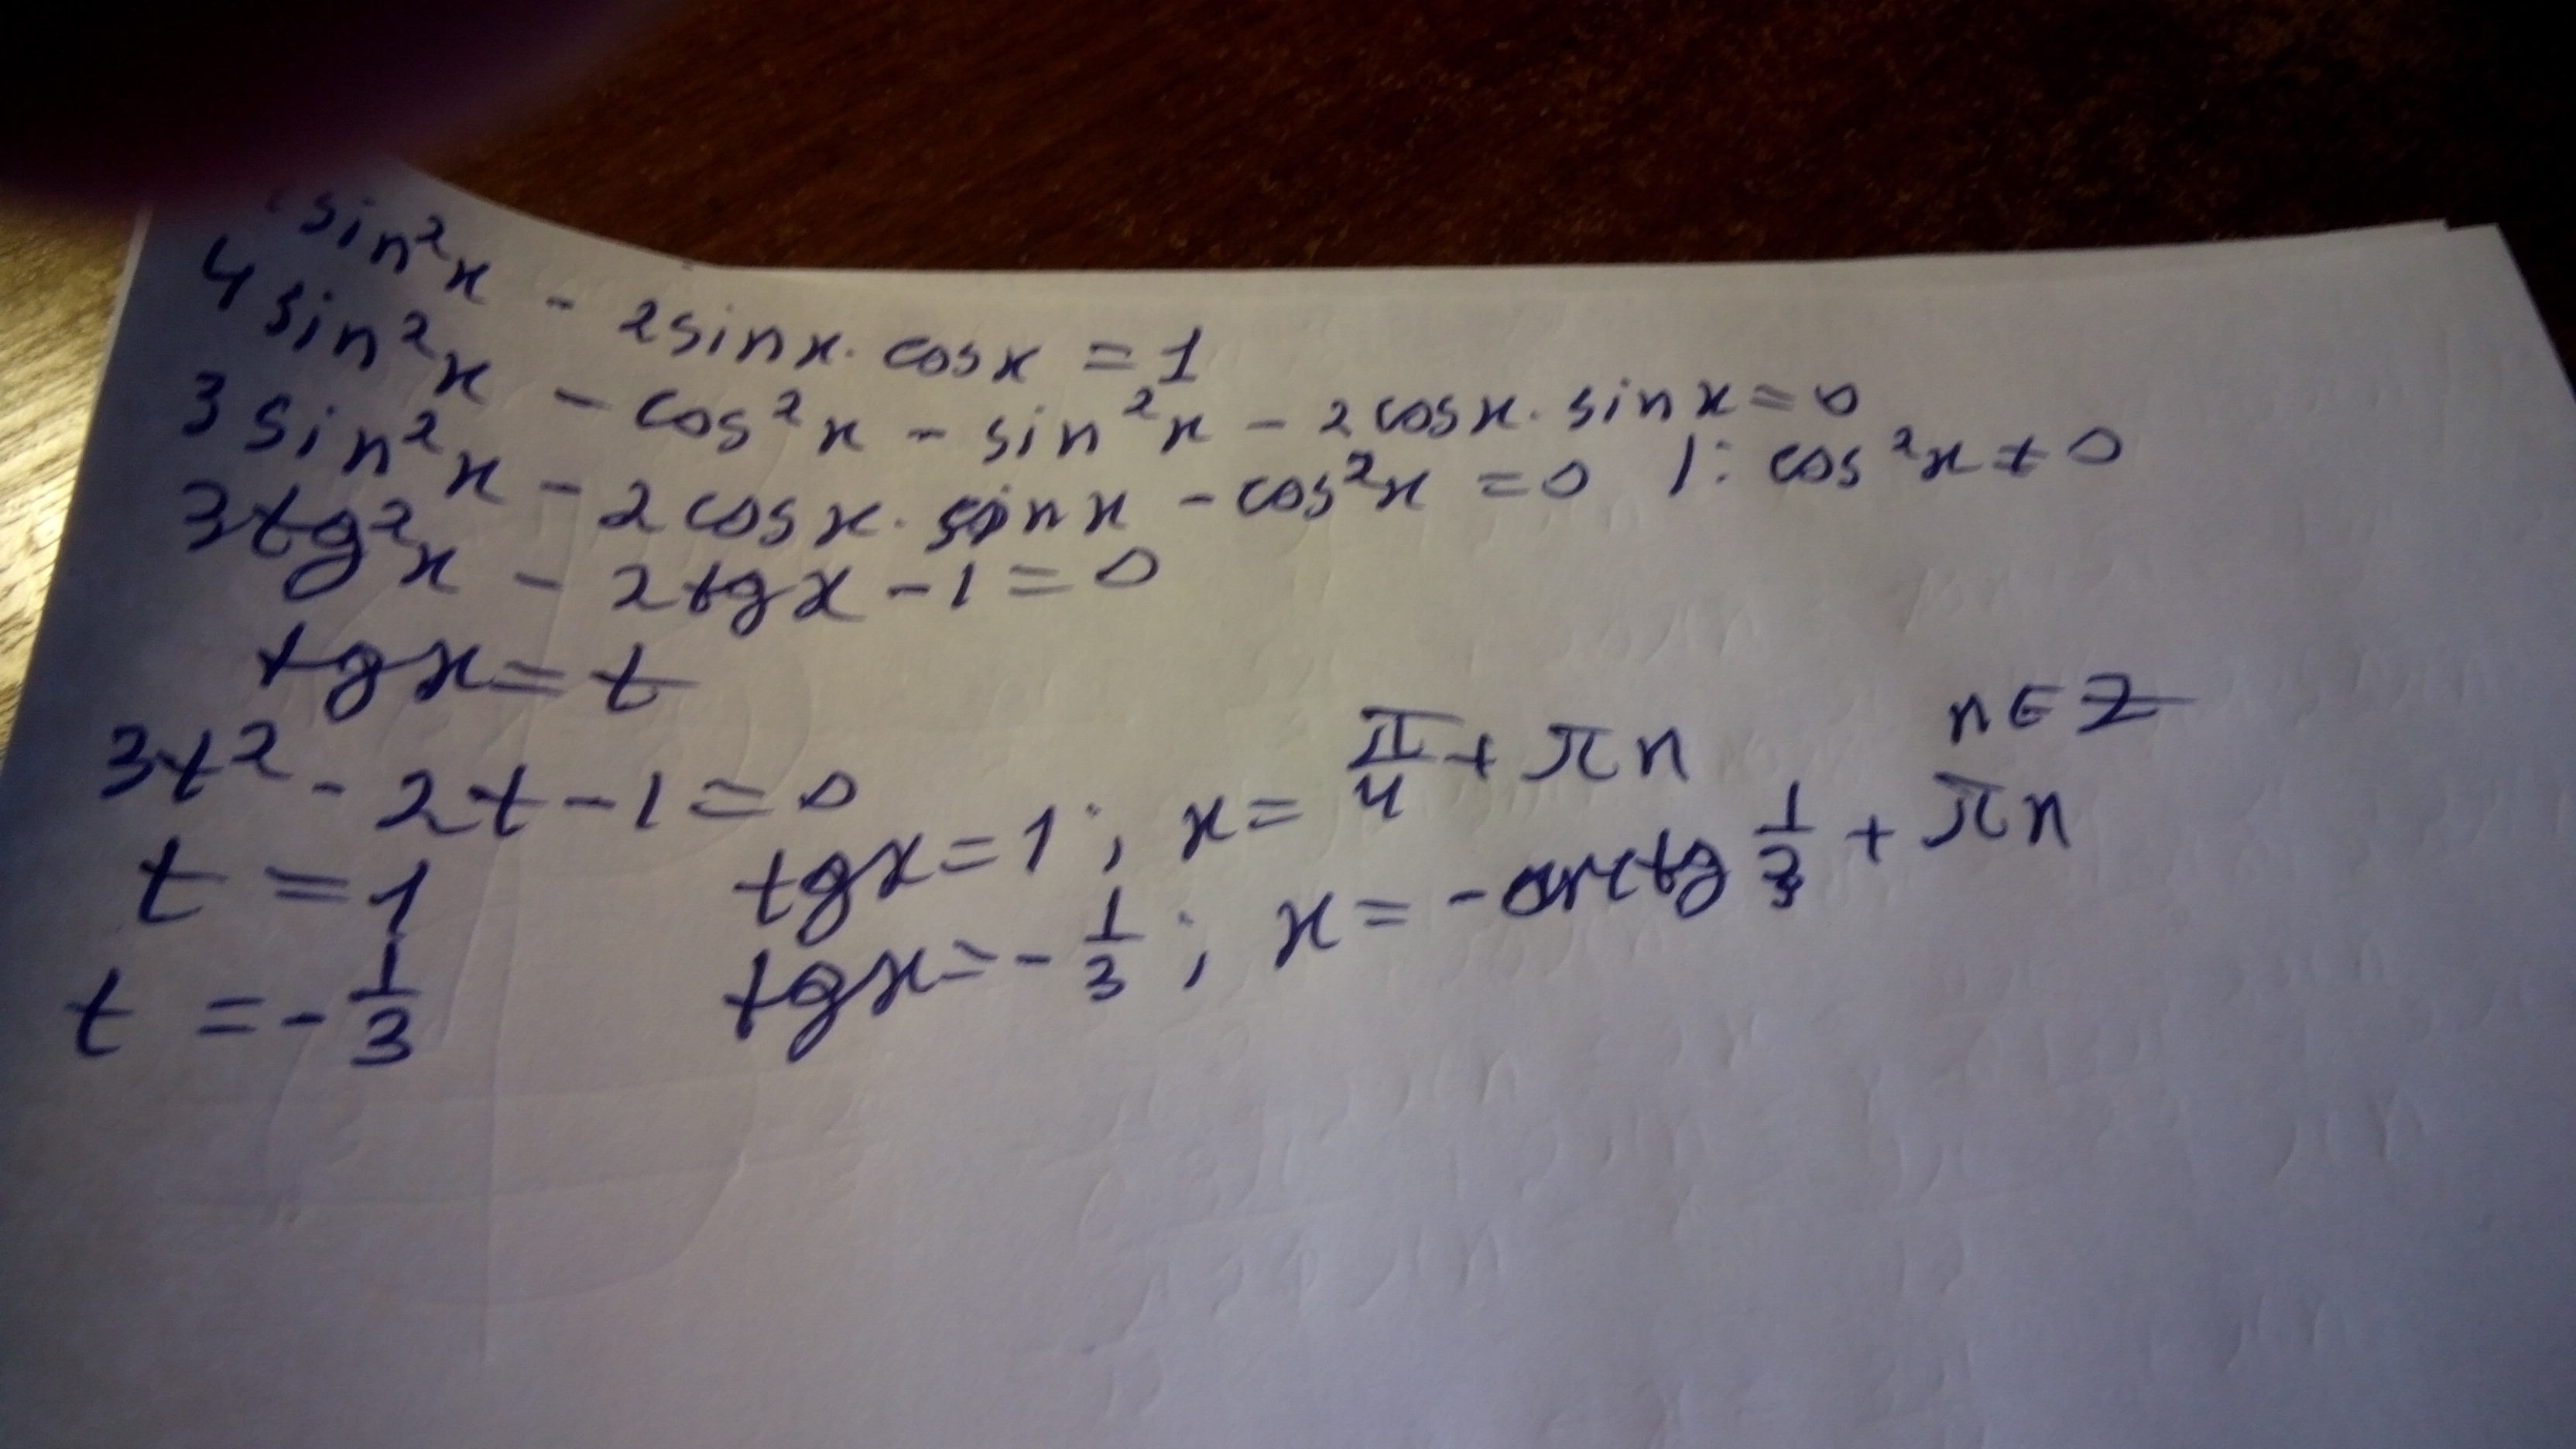 sin²x - 2sinx · cosx = 1
4sin²x - cos²x - sin²x - 2cosx · sinx = 0
3sin²x - 2cosx · sinx - cos²x = 0 |: cos²x ≠ 0
3tg²x - 2tgx - 1 = 0
tgx = t
3t² - 2t - 1 = 0
t = 1 tgx = 1; x = π/4 + πn n ∈ Z
t = -1/3 tgx = -1/3; x = -arctg 1/3 + πn